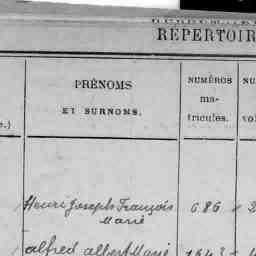 RÉPERTOIR
PRÉNOMS
ET SURNOMS.
NUMÉROS
ma-
tricules.
NU
vol
e.)
Henri Joseph François 686 2
Marie
alfred albert Marie 1643